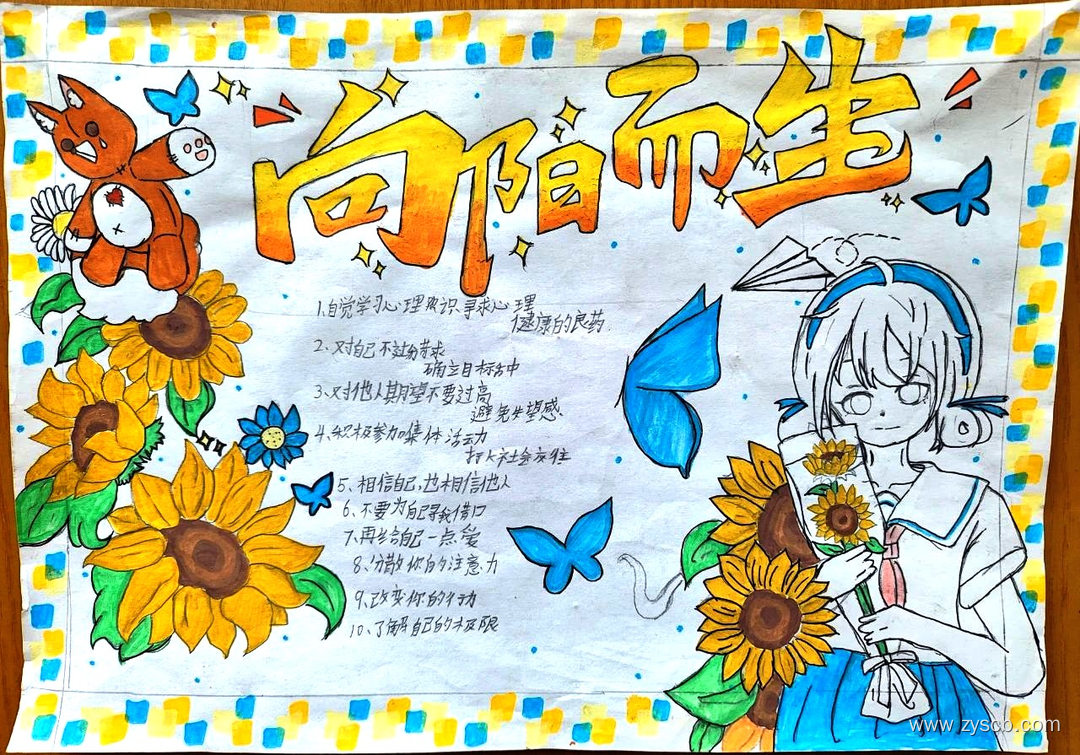 向阳而生
1、自觉学习心理知识寻求心理
健康的良药.
2、对自己不过分苛求
确立目标适中
3、对他人期望不要过高
避免失望感
4、积极参加集体活动
扩大社会交往
5、相信自己,也相信他人
6、不要为自己寻找借口
7、再给自己一点爱
8、分散你的注意力
9、改变你的行动
10、了解自己的极限
www.zyscb.com